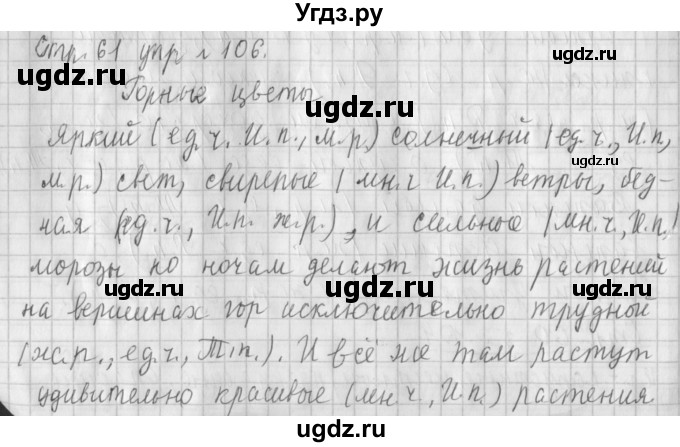 Угдз.ру
Стр. 61 упр № 106.
ugdz.ru ugdz.ru
Горные цветы
ugdz.ru
Яркий (ед.ч. И.п., м.р.) солнечный (ед.ч., И.п.,
ugdz.ru
м.р.) свет, свирепые (мн.ч И.п.) ветры, бед-
ugdz.ru
ная (ед.ч., И.п. ж.р.), и сильные (мн.ч., И.п.)
ugdz.ru
морозы по ночам делают жизнь растений
ugdz.ru ugdz.ru
на вершинах гор исключительно трудной
(ж.р., ед.ч., Т.п.). И всё же там растут
ugdz.ru ugdz.ru
удивительно красивые (мн.ч., И.п.) растения
ugdz.ru